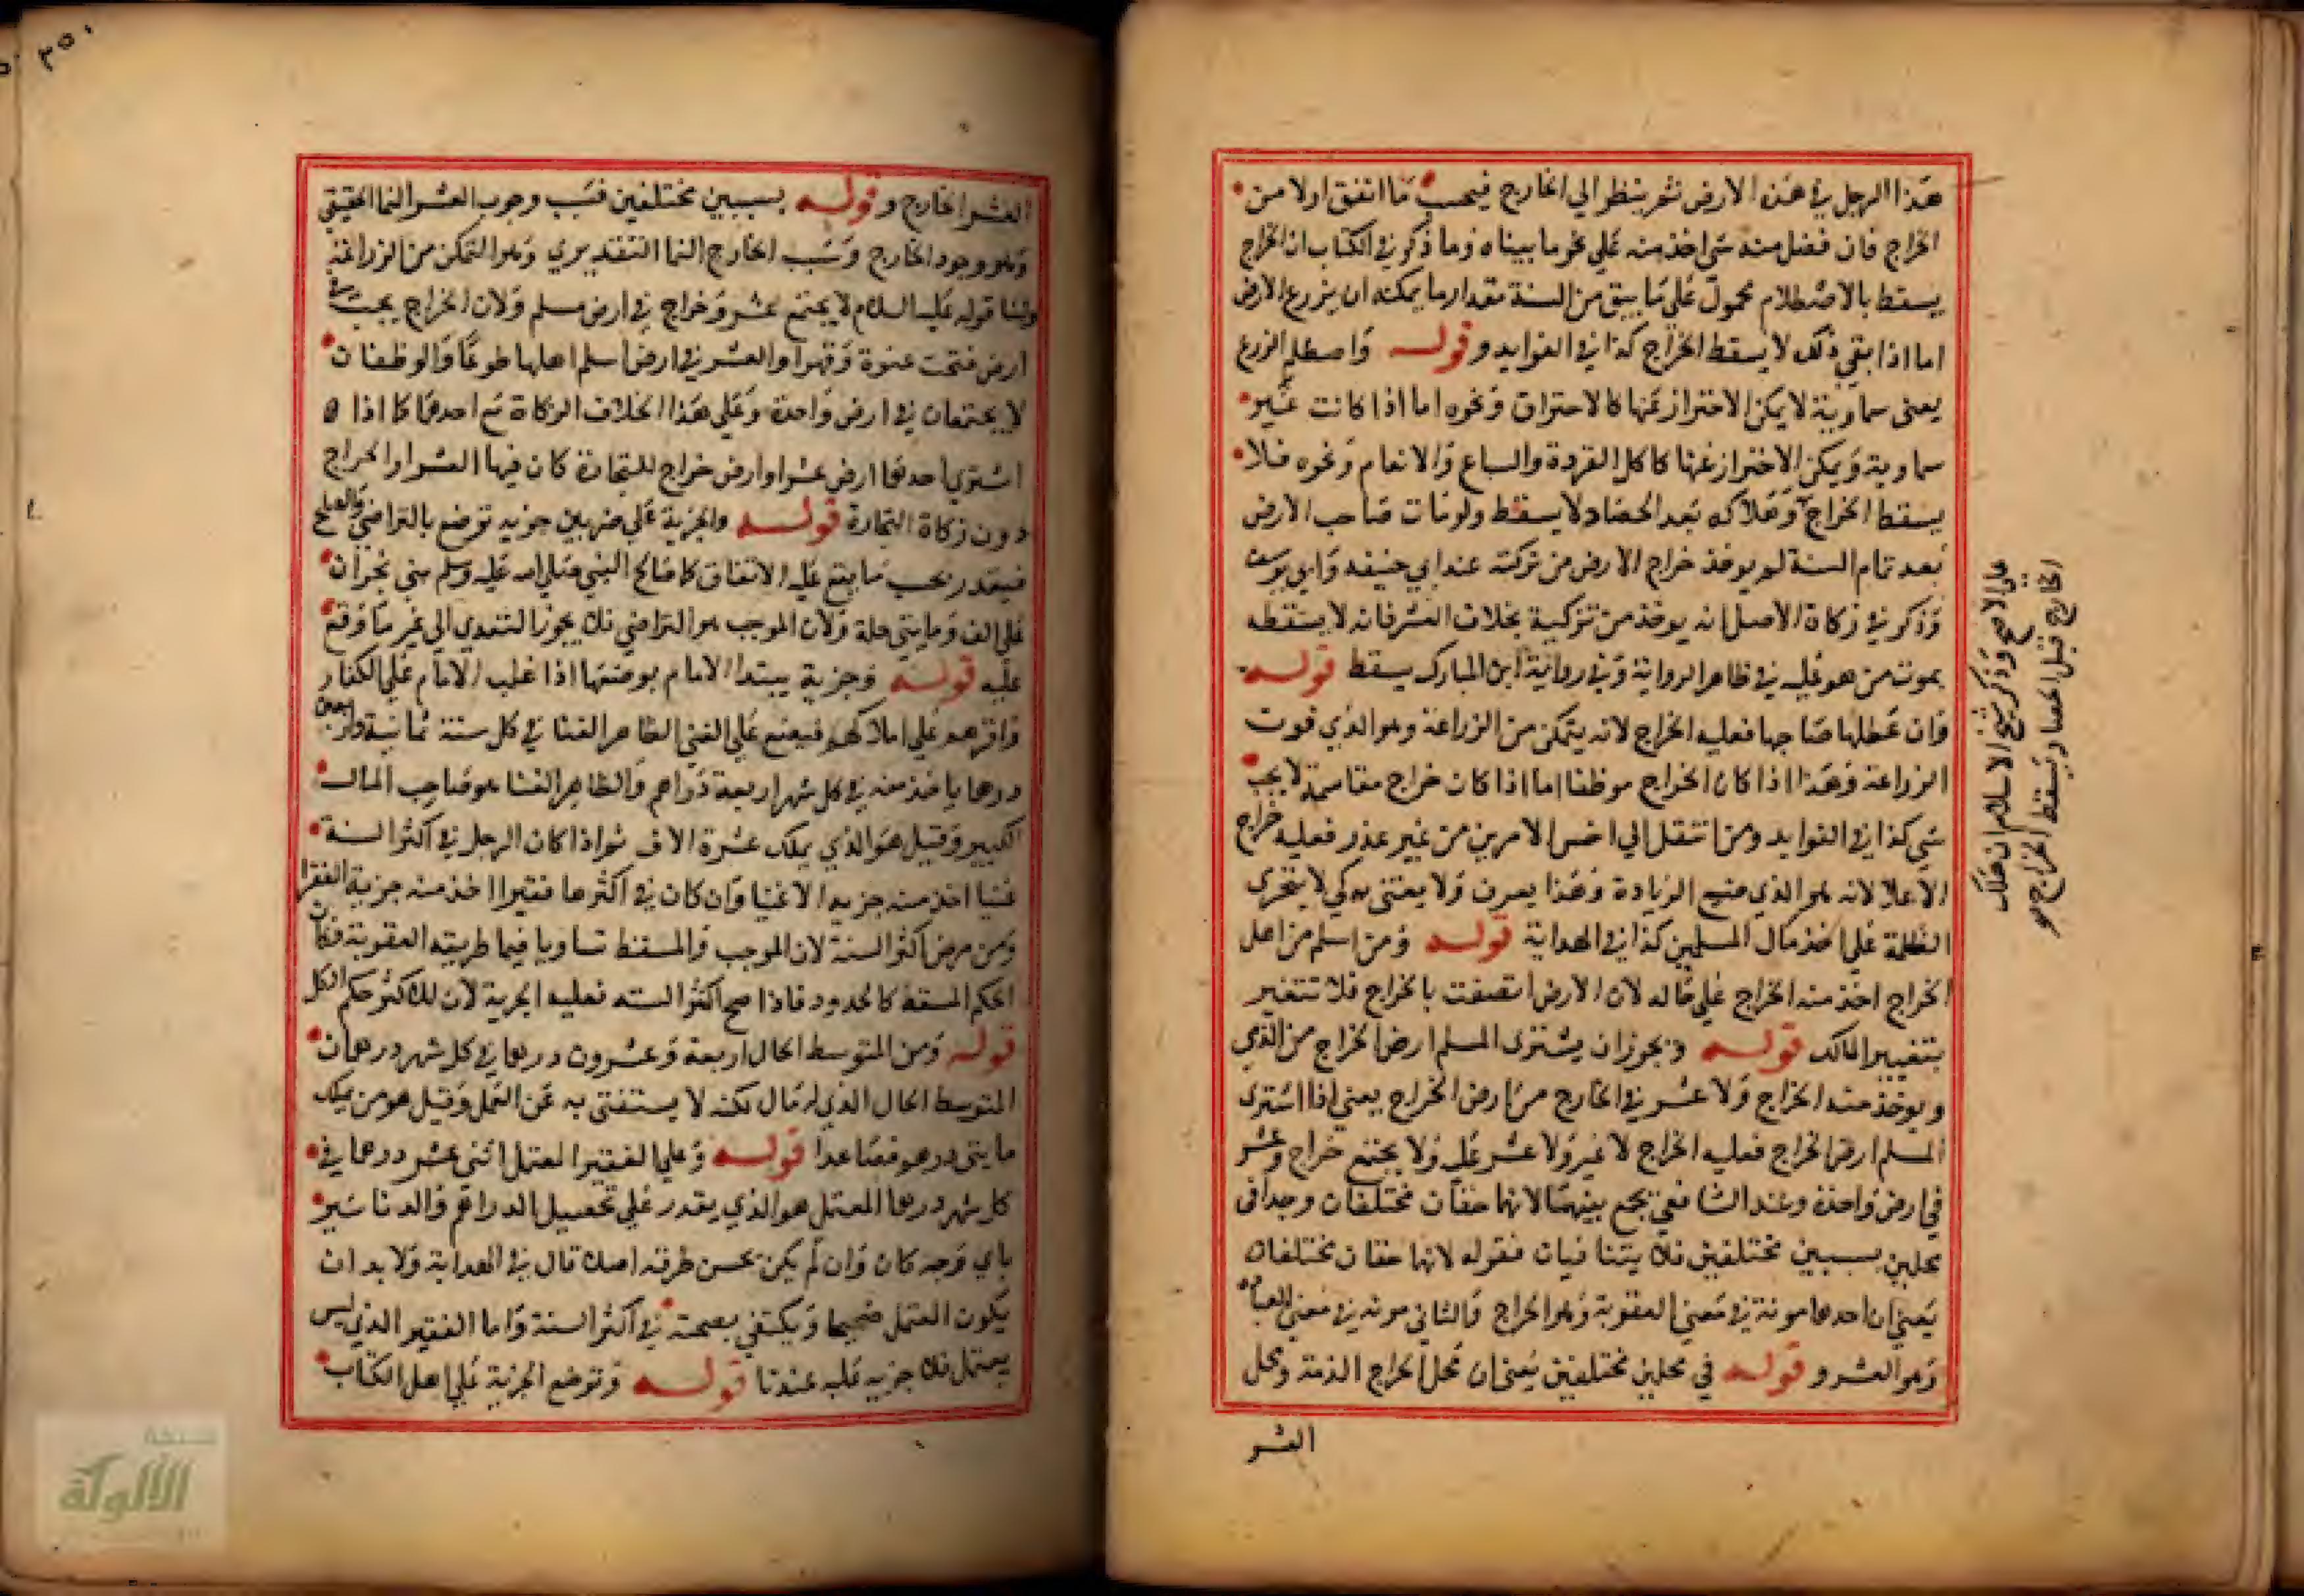 هذا الرجل في هذه الارض ثم ينظر الي الخارج فيحسب ما انفق اولا من
الخراج فان فضل منه شي اخذ منه علي نحو ما بيناه وما ذكر في الكتاب ان الخراج
يسقط بالاصطلام محمول علي ما يبق من السنة مقدار ما يمكنه ان يزرع الارض
اما اذا بقي ذلك لا يسقط الخراج كذا في الفوايد وقوله واصطلم الزرع
يعنى سماوية لا يمكن الاحتراز عنها كالاحتراق ونحوه اما اذا كانت غير
سماوية ويمكن الاحتراز عنها كاكل القردة والسباع والانعام ونحوه فلا
يسقط الخراج وهلاكه بعد الحصاد لا يسقط ولو مات صاحب الارض
بعد تمام السنة لم يوخذ خراج الارض من تركته عند ابي حنيفه وابي يوسف
وذكر في زكاة الاصل انه يوخذ من تركته بخلاف العشر فانه لا يسقط
بموت من هو عليه في ظاهر الرواية وفي رواية ابن المبارك يسقط قوله
وان عطلها صاحبها فعليه الخراج لانه يتمكن من الزراعة وهو الذي فوت
الزراعة وهذا اذا كان الخراج موظفا اما اذا كان خراج مقاسمة لا يجب
شي كذا في الفوايد ومن انتقل الي اخس الامرين من غير عذر فعليه خراج
الاعلا لانه هو الذي ضيع الزيادة وهذا يعرف ولا يفتى به كي لا يتجرى
الظلمة علي اخذ مال المسلمين كذا في الهداية قوله ومن اسلم من اهل
الخراج اخذ منه الخراج علي حاله لان الارض اتصفت بالخراج فلا تتغير
بتغيير المالك قوله ويجوز ان يشترى المسلم ارض الخراج من الذمي
ويوخذ منه الخراج ولا عشر في الخارج من ارض الخراج يعني اذا اشترى
المسلم ارض الخراج فعليه الخراج لا غير ولا عشر عليه ولا يجتمع خراج وعشر
في ارض واحدة وعند الشافعي يجمع بينهما لانها حقان مختلفان وجدا في
محلين بسببين مختلفين فلا يتنافيان فقوله لانها حقان مختلفان
يعني ان احدهما مونة في معني العقوبة وهو الخراج والثاني مونه في معني العبادة
وهو العشر وقوله في محلين مختلفين يعني ان محل الخراج الذمة ومحل
العشر
على الاصح وذكر شيخ الاسلام ان هلاك
الخارج قبل الحصاد يسقط الخراج
٣٥٠
العشر الخارج وقوله بسببين مختلفين فسبب وجوب العشر النما الحقيقي
وهو وجود الخارج وسبب الخارج النما التقديري وهو التمكن من الزراعة
ولنا قوله عليه السلام لا يجتمع عشر وخراج في ارض مسلم ولان الخراج يجب في
ارض فتحت عنوة وقهرا والعشر في ارض اسلم اهلها طوعا والوظفان
لا يجتمعان في ارض واحدة وعلي هذا الخلاف الزكاة مع احدهما كما اذا
اشتري احدهما ارض عشر او ارض خراج للتجارة كان فيها العشر او الخراج
دون زكاة التجارة قوله والجزية علي ضربين جزيه توضع بالتراضي والصلح
فيتقدر بحسب ما يقع عليه الاتفاق كما صالح النبي صلي الله عليه وسلم بني نجران
علي الف ومايتي حلة ولان الموجب هو التراضي فلا يجوز التعدي الي غير ما وقع
عليه قوله وجزية يبتدا الامام بوضعها اذا غلب الامام علي الكفار
واقرهم علي املاكهم فيضع علي الغني الظاهر الغنا في كل سنة ثمانية واربعين
درهما ياخذ منه في كل شهر اربعة دراهم والظاهر الغنا هو صاحب المال
الكبير وقيل هو الذي يملك عشرة الاف ثم اذا كان الرجل في اكثر السنة
غنيا اخذ منه جزية الاغنيا وان كان في اكثرها فقيرا اخذ منه جزية الفقرا
ومن مرض اكثر السنة لان الموجب والمسقط تساويا فيما طريقه العقوبة فكان
الحكم المسقط كالحدود فاذا صح اكثر السنه فعليه الجزية لان للاكثر حكم الكل
قوله ومن المتوسط الحال اربعة وعشرون درهما في كل شهر درهمان
المتوسط الحال الذي له مال لكنه لا يستغني به عن العمل وقيل هو من يملك
مايتي درهم فصاعدا قوله وعلي الفقير المعتمل اثني عشر درهما في
كل شهر درهما المعتمل هو الذي يقدر علي تحصيل الدراهم والدنانير
باي وجه كان وان لم يكن يحسن حرفه اصلا قال في الهداية ولا بد ان
يكون المعتمل صحيحا ويكتفي بصحته في اكثر السنة واما الفقير الذي ليس
بمعتمل فلا جزيه عليه عندنا قوله وتوضع الجزية علي اهل الكتاب
الألوكة